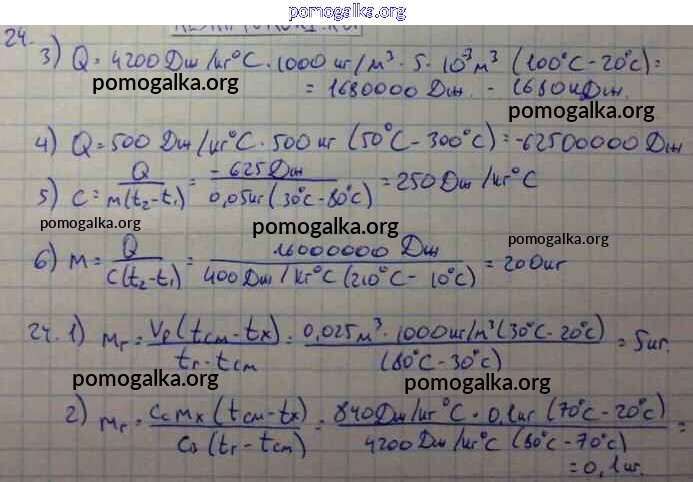 pomogalka.org
24.
3) Q = 4200 Дж/кг°C · 1000 кг/м³ · 5 · 10⁻³ м³ (100°C - 20°C) =
= 1680000 Дж = 1680 кДж.
pomogalka.org
pomogalka.org
4) Q = 500 Дж/кг°C · 500 кг (50°C - 300°C) = -62500000 Дж
5) C = Q / m(t₂-t₁) = -625 Дж / 0,05 кг (30°C - 80°C) = 250 Дж/кг°C
pomogalka.org
pomogalka.org
pomogalka.org
6) m = Q / C(t₂-t₁) = 16000000 Дж / 400 Дж/кг°C (210°C - 10°C) = 200 кг
24. 1) mг = Vρ(tсм - tх) / tг - tсм = 0,025 м³ · 1000 кг/м³ (30°C - 20°C) / (80°C - 30°C) = 5 кг.
pomogalka.org
pomogalka.org
2) mг = Cс mх (tсм - tх) / Cв (tг - tсм) = 840 Дж/кг°C · 0,1 кг (70°C - 20°C) / 4200 Дж/кг°C (80°C - 70°C) =
= 0,1 кг.